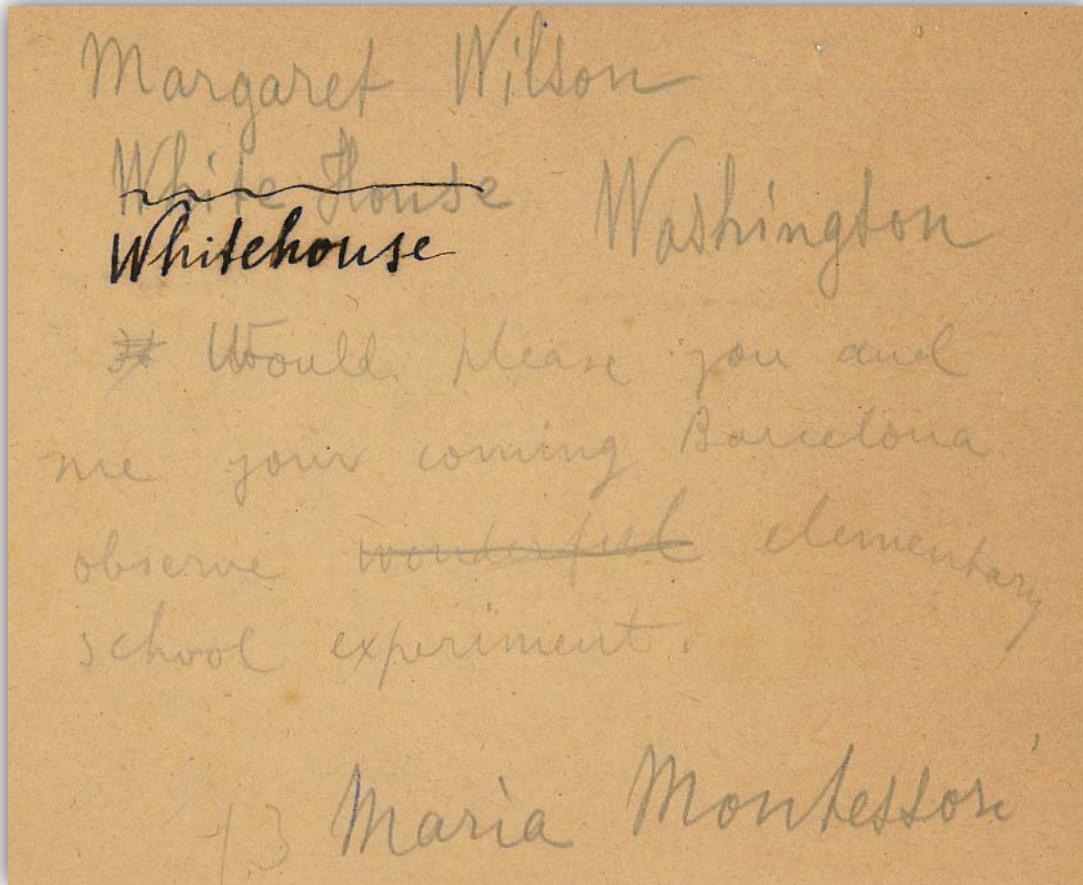 Margaret Wilson
White House Washington
Whitehouse
Would please you and
me your coming Barcelona
observe wonderful elementary
school experiment.
13 Maria Montessori